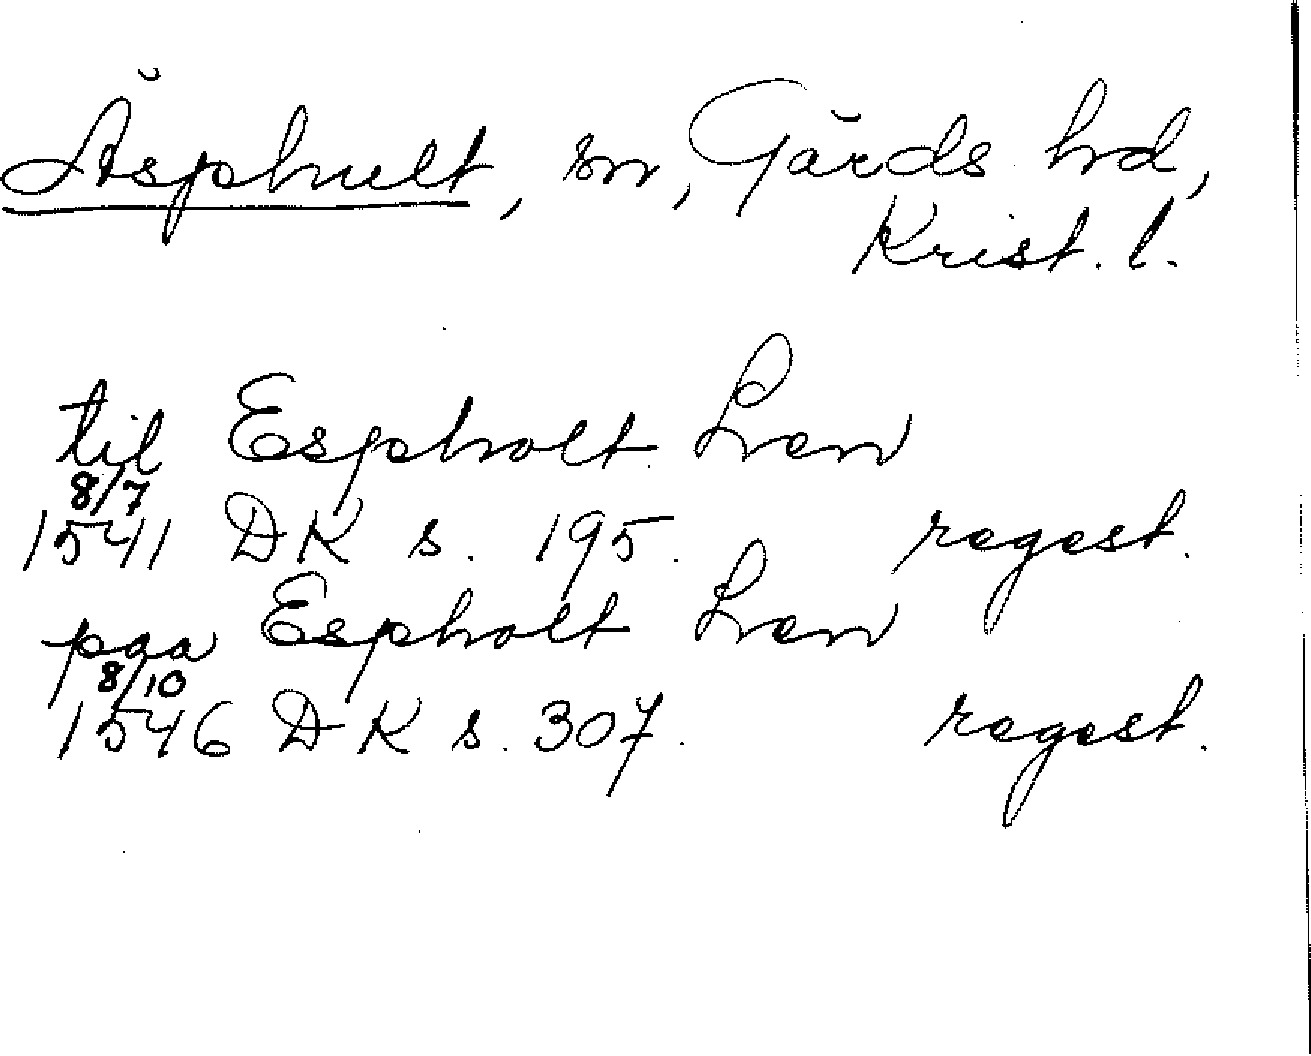 Äsphult, sn, Gärds hd,
Krist. l.
til Espholt Len
8/7
1541 DK s. 195. regest.
paa Espholt Len
8/10
1546 DK s. 307. regest.